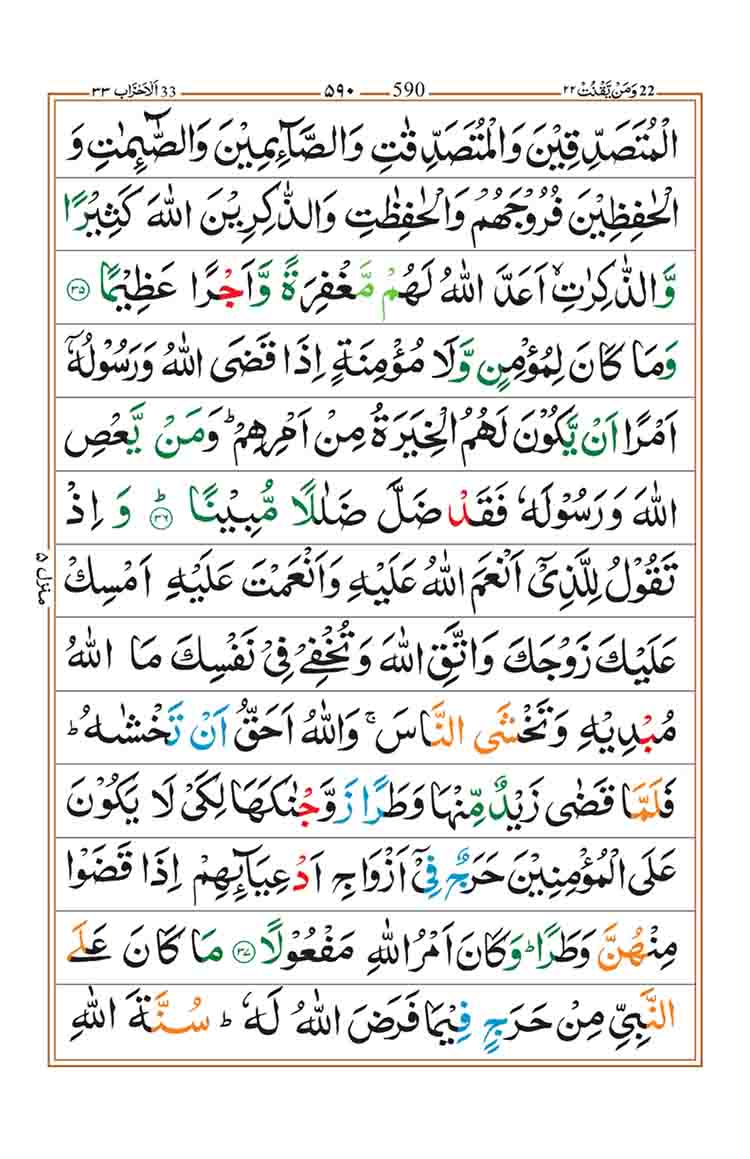 22 وَمَنْ يَّقْنُتْ ٢٢ 590 ٥٩٠ 33 اَلْاَحْزَاب ٣٣
الْمُتَصَدِّقِيْنَ وَالْمُتَصَدِّقٰتِ وَالصَّآئِمِيْنَ وَالصّٰٓئِمٰتِ وَ
الْحٰفِظِيْنَ فُرُوْجَهُمْ وَالْحٰفِظٰتِ وَالذّٰكِرِيْنَ اللّٰهَ كَثِيْرًا
وَّالذّٰكِرٰتِ ۙ اَعَدَّ اللّٰهُ لَهُمْ مَّغْفِرَةً وَّاَجْرًا عَظِيْمًا ۝٣٥
وَمَا كَانَ لِمُؤْمِنٍ وَّلَا مُؤْمِنَةٍ اِذَا قَضَى اللّٰهُ وَرَسُوْلُهٗٓ
اَمْرًا اَنْ يَّكُوْنَ لَهُمُ الْخِيَرَةُ مِنْ اَمْرِهِمْ ؕ وَمَنْ يَّعْصِ
اللّٰهَ وَرَسُوْلَهٗ فَقَدْ ضَلَّ ضَلٰلًا مُّبِيْنًا ؕ۝٣٦ وَ اِذْ
تَقُوْلُ لِلَّذِيْٓ اَنْعَمَ اللّٰهُ عَلَيْهِ وَاَنْعَمْتَ عَلَيْهِ اَمْسِكْ
عَلَيْكَ زَوْجَكَ وَاتَّقِ اللّٰهَ وَتُخْفِيْ فِيْ نَفْسِكَ مَا اللّٰهُ
مُبْدِيْهِ وَتَخْشَى النَّاسَ ۚ وَاللّٰهُ اَحَقُّ اَنْ تَخْشٰىهُ ؕ
فَلَمَّا قَضٰى زَيْدٌ مِّنْهَا وَطَرًا زَوَّجْنٰكَهَا لِكَيْ لَا يَكُوْنَ
عَلَى الْمُؤْمِنِيْنَ حَرَجٌ فِيْٓ اَزْوَاجِ اَدْعِيَآئِهِمْ اِذَا قَضَوْا
مِنْهُنَّ وَطَرًا ؕ وَكَانَ اَمْرُ اللّٰهِ مَفْعُوْلًا ۝٣٧ مَا كَانَ عَلَي
النَّبِيِّ مِنْ حَرَجٍ فِيْمَا فَرَضَ اللّٰهُ لَهٗ ؕ سُنَّةَ اللّٰهِ
منزل ٥